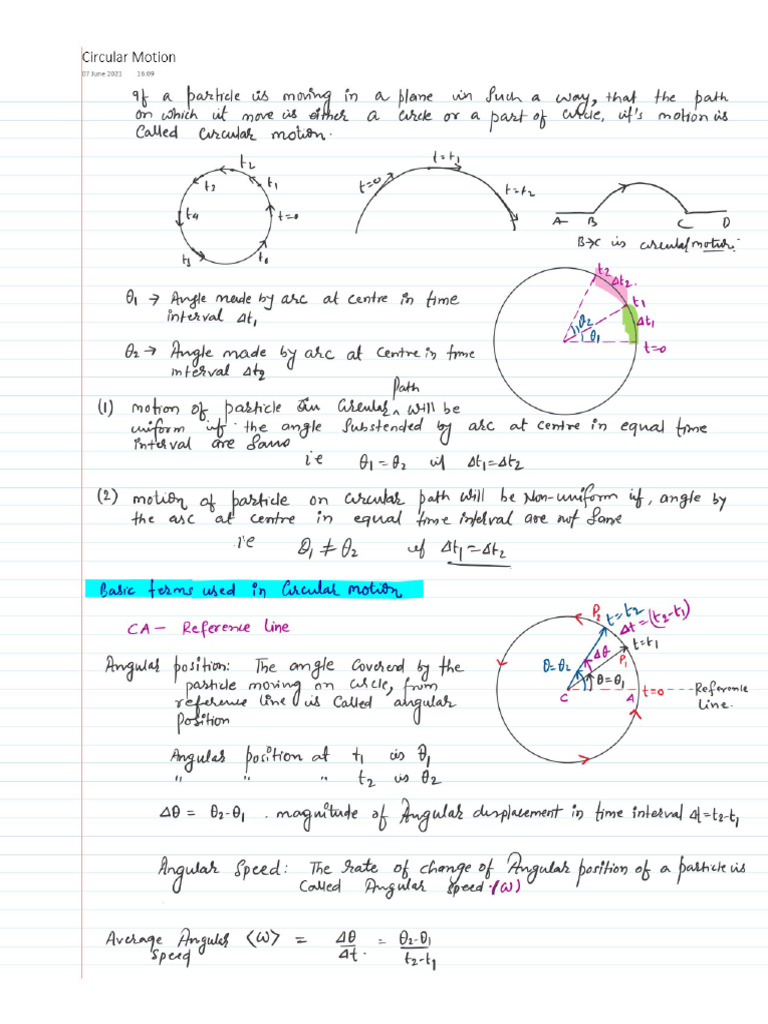 Circular Motion
07 June 2021 16:09
If a particle is moving in a plane in such a way, that the path
on which it move is either a circle or a part of circle, it's motion is
called circular motion.
t2
t3 t1
t4 t=0
t5 t6
t=t1
t=0 t=t2
A B C D
B→C is circular motion.
t2 Δt2.
t1
Δt1
θ2
θ1
t=0
θ1 → Angle made by arc at centre in time
interval Δt1
θ2 → Angle made by arc at centre in time
interval Δt2
Path
(1) motion of particle in circular ^ will be
uniform if the angle substended by arc at centre in equal time
interval are same
ie θ1 = θ2 if Δt1 = Δt2
(2) motion of particle on circular path will be Non-uniform if, angle by
the arc at centre in equal time interval are not same
i.e θ1 ≠ θ2 if Δt1 = Δt2
Basic terms used in Circular motion
CA - Reference line
P2 t=t2
Δt=(t2-t1)
t=t1
P1
Δθ
θ=θ2
θ=θ1
C A t=0 ---Reference
Line.
Angular position: The angle covered by the
particle moving on circle, from
reference line is called angular
position
Angular position at t1 is θ1
" " " t2 is θ2
Δθ = θ2-θ1 . magnitude of Angular displacement in time interval Δt=t2-t1
Angular Speed: The rate of change of Angular position of a particle is
called Angular speed.(ω)
Average Angular <ω> = Δθ/Δt. = θ2-θ1/t2-t1
Speed